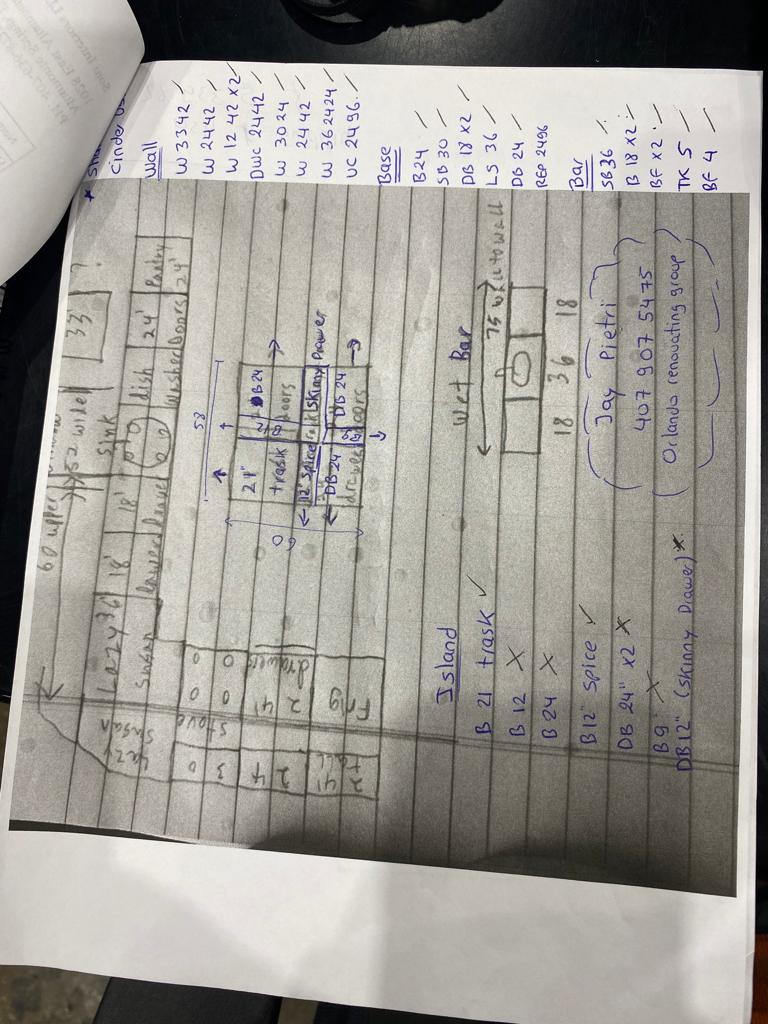 Wall
W 3342
W 2442
W 12 42 x2
DWC 2442
W 3024
W 2442
W 362424
UC 2496
Base
B24
SB 30
DB 18 x2
LS 36
DB 24
REP 2496
Bar
SB36
B 18 x2
BF x2
TK 5
BF 4
60 upper
52 wide
33 ?
Lazy 36 18' 18' Sink dish 24' Pantry
Susan drawer washer Doors 24'
Lazy Susan
0 0 0
stove
3 0 0
24 24 drawers
tall Frig
58
60
24" 12 DB24
trash 9 doors
12" Spice Skinny Drawer
DB 24 DB 24
drawers doors
Wet Bar
75 wall to wall
18 36 18
Jay Pietri
407 907 5475
Orlando renovating group
Island
B 21 trash ✓
B 12 X
B 24 X
B12" Spice ✓
DB 24" x2 X
B9" X
DB12" (Skinny Drawer) X